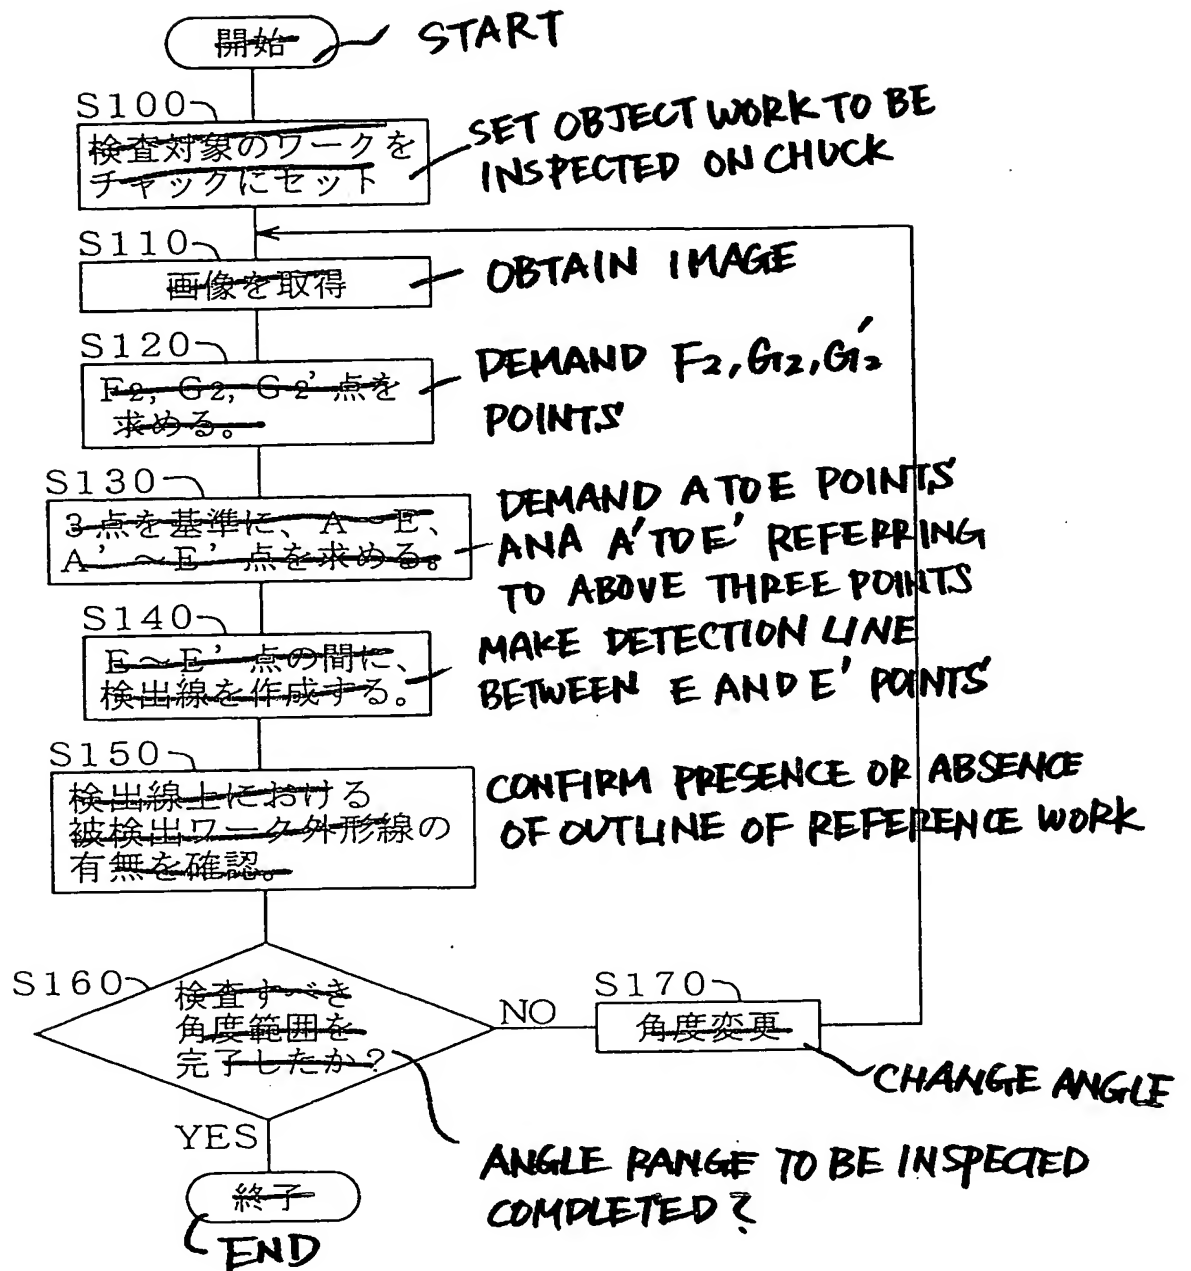 開始
START
S100
検査対象のワークを
チャックにセット
SET OBJECT WORK TO BE
INSPECTED ON CHUCK
S110
画像を取得
OBTAIN IMAGE
S120
F2, G2, G2' 点を
求める。
DEMAND F2, G2, G'2
POINTS
S130
3点を基準に、A~E、
A'~E'点を求める。
DEMAND A TO E POINTS
ANA A' TO E' REFERRING
TO ABOVE THREE POINTS
S140
E~E'点の間に、
検出線を作成する。
MAKE DETECTION LINE
BETWEEN E AND E' POINTS
S150
検出線上における
被検出ワーク外形線の
有無を確認。
CONFIRM PRESENCE OR ABSENCE
OF OUTLINE OF REFERENCE WORK
S160
検査すべき
角度範囲を
完了したか?
NO
S170
角度変更
CHANGE ANGLE
YES
ANGLE RANGE TO BE INSPECTED
COMPLETED?
終了
END